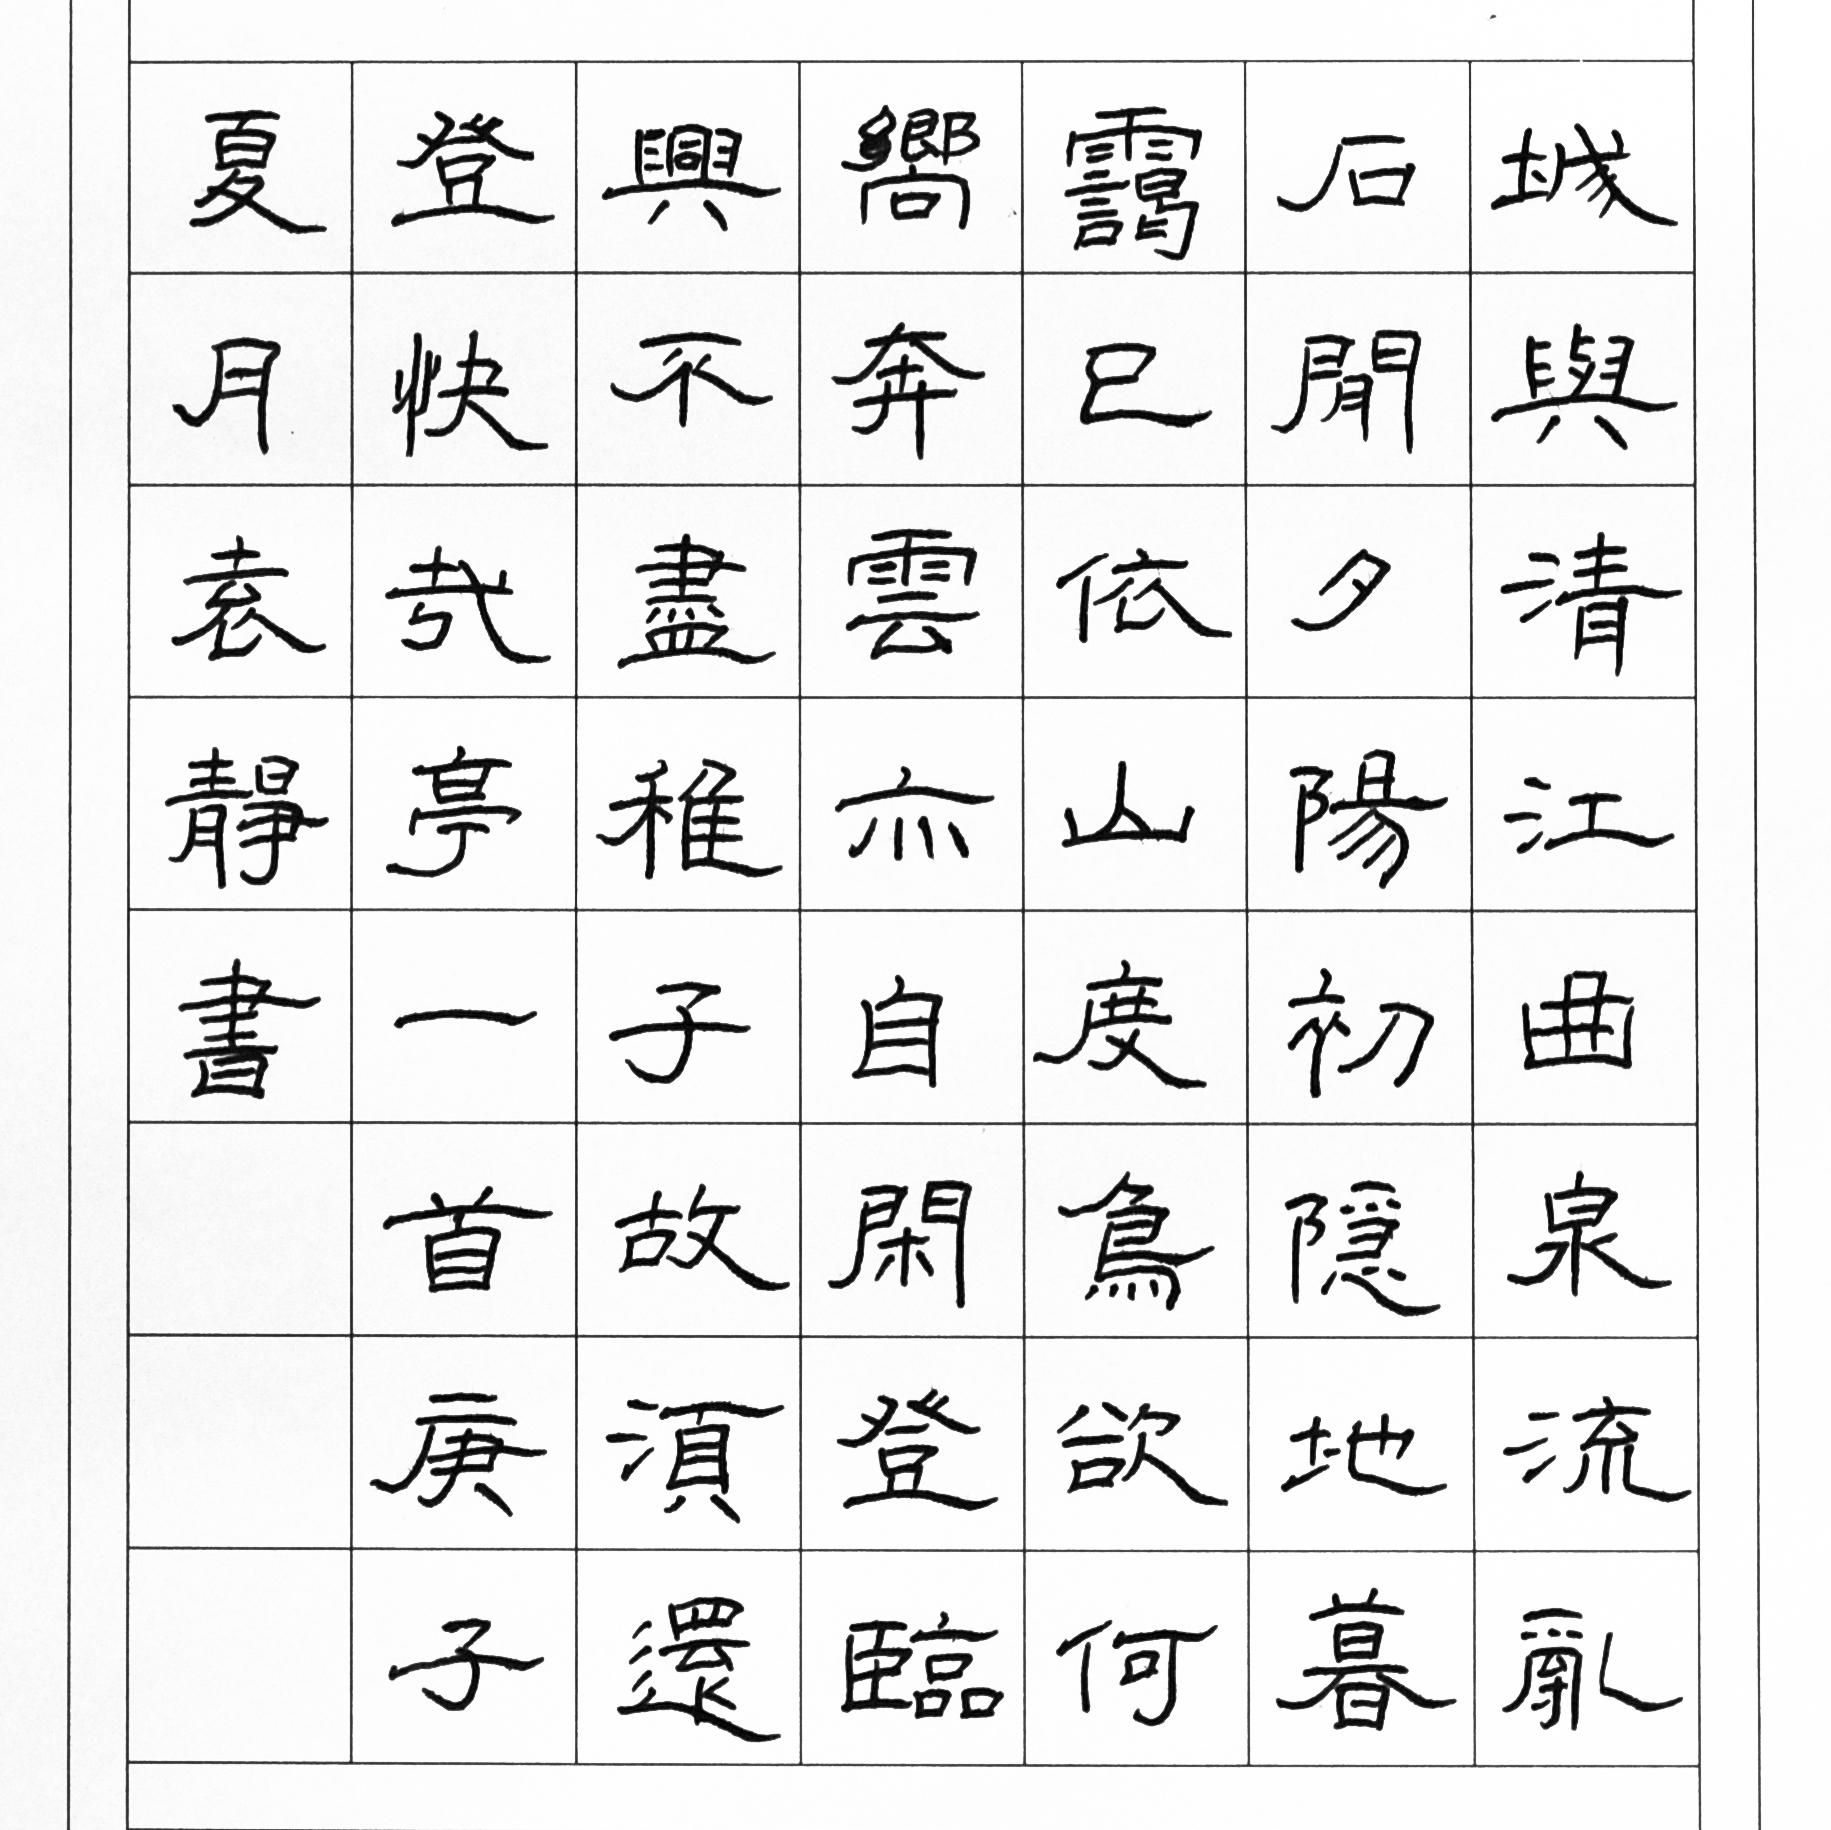 城與清江曲泉流亂
石閒夕陽初隱地暮
靄已依山度鳥欲何
嚮奔雲亦自閑登臨
興不盡稚子故湏還
登快哉亭一首庚子
夏月袁靜書